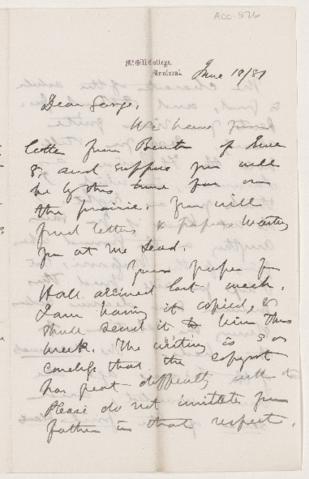 ACC-826
McGill College,
Montreal.
June 10/87
Dear George,
We have yours
letter from Bawtree of June
8, and suppose you will
be by this time far on
the prairie. You will
find letters & papers waiting
you at Mc Lead.
Yours papers for
Hall arrived last week.
I am having it copied, &
shall send it to him this
week. The writing is so
careless that the copyist
has great difficulty with it
Please do not imitate your
father in that respect.